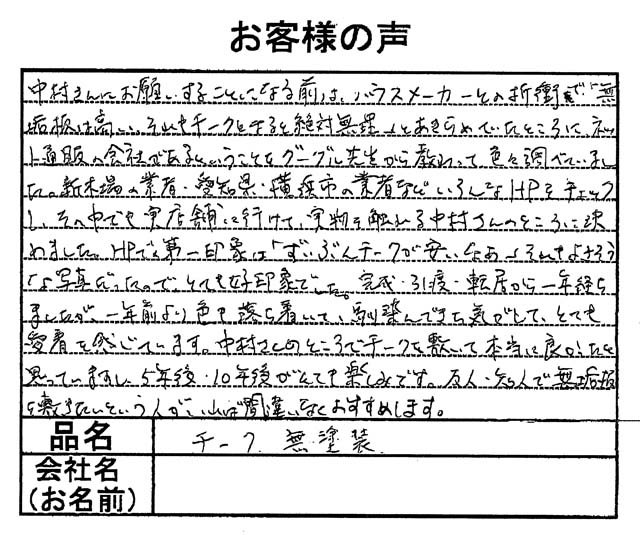 お客様の声
中村さんにお願いすることになる前は、ハウスメーカーとの折衝で「無
垢板は高い。それもチークとなると絶対無理」とあきらめていたところに、ネッ
ト通販の会社であるということをグーグル先生から教わって、色々調べていまし
た。新木場の業者・愛知県・横浜市の業者などいろんなHPをチェック
し、その中でも実店舗に行けて、実物を触れる中村さんのところに決
めました。HPでの第一印象は「ずいぶんチークが安いなあ」それもよさそう
な写真だったので、とても好印象でした。完成・引渡・転居から一年経ち
ましたが、一年前より色も落ち着いて、馴染んできた気がして、とても
愛着を感じています。中村さんのところでチークを敷いて本当に良かったと
思っていますし、5年後・10年後がとても楽しみです。友人・知人で無垢板
を敷きたいという人がいれば間違いなくおすすめします。
品名 チーク 無塗装
会社名
(お名前)